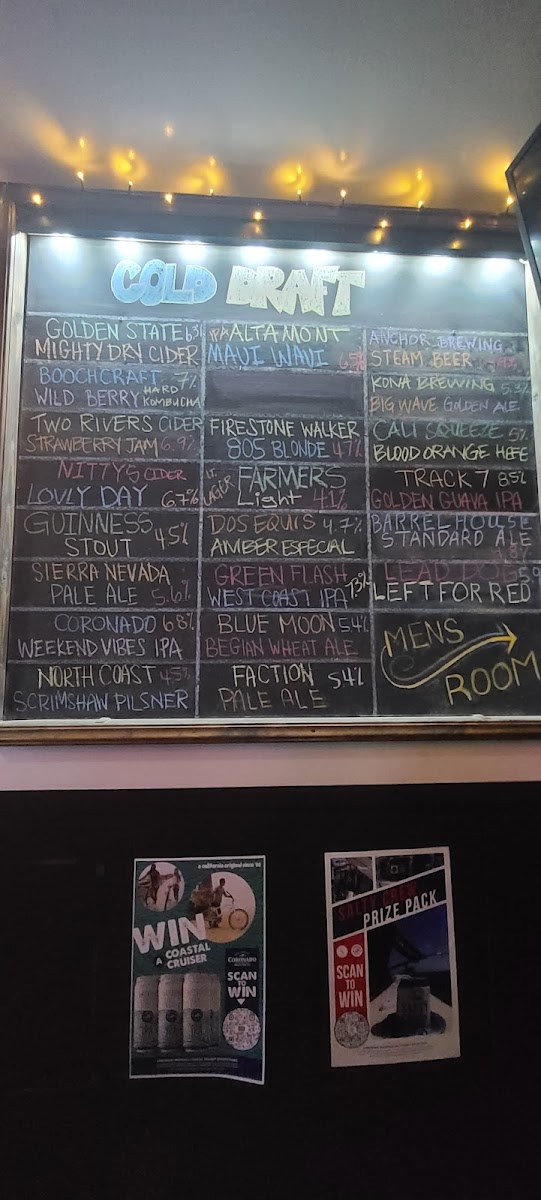 COLD DRAFT
GOLDEN STATE 6.3%
MIGHTY DRY CIDER
BOOCHCRAFT 7%
WILD BERRY HARD KOMBUCHA
TWO RIVERS CIDER
STRAWBERRY JAM 6.9%
NITTY'S CIDER
LOVLY DAY 6.7%
GUINNESS
STOUT 4.5%
SIERRA NEVADA
PALE ALE 5.6%
CORONADO 6.8%
WEEKEND VIBES IPA
NORTH COAST 4.5%
SCRIMSHAW PILSNER
IPA ALTAMONT
MAUI WAUI 6.5%
FIRESTONE WALKER
805 BLONDE 4.7%
LT. LAGER FARMERS
Light 4.1%
DOS EQUIS 4.7%
AMBER ESPECIAL
GREEN FLASH
WEST COAST IPA
BLUE MOON 5.4%
BEGIAN WHEAT ALE
FACTION 5.4%
PALE ALE
ANCHOR BREWING
STEAM BEER
KONA BREWING
BIG WAVE GOLDEN ALE
CALI SQUEEZE 5%
BLOOD ORANGE HEFE
TRACK 7 8.5%
GOLDEN GUAVA IPA
BARREL HOUSE
STANDARD ALE
LEAD DOG
LEFT FOR RED
MENS
ROOM
a california original since '96
WIN
A COASTAL
CRUISER
CORONADO
SCAN
TO
WIN
SALTY CREW
PRIZE PACK
SCAN
TO
WIN